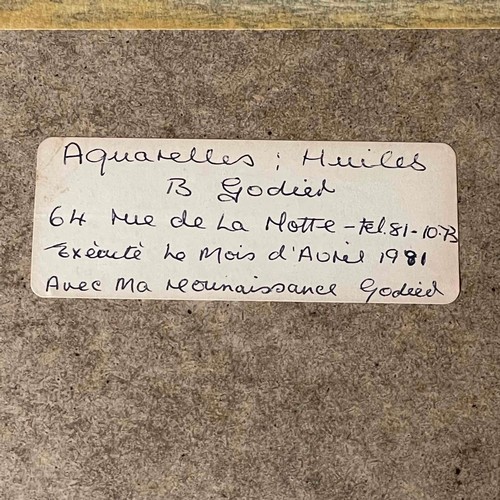 Aquarelles : Huiles
B Godied
64 rue de La Motte - tel. 81-10-73
Exécuté Le Mois d'Avril 1981
Avec Ma reconnaissance Godied